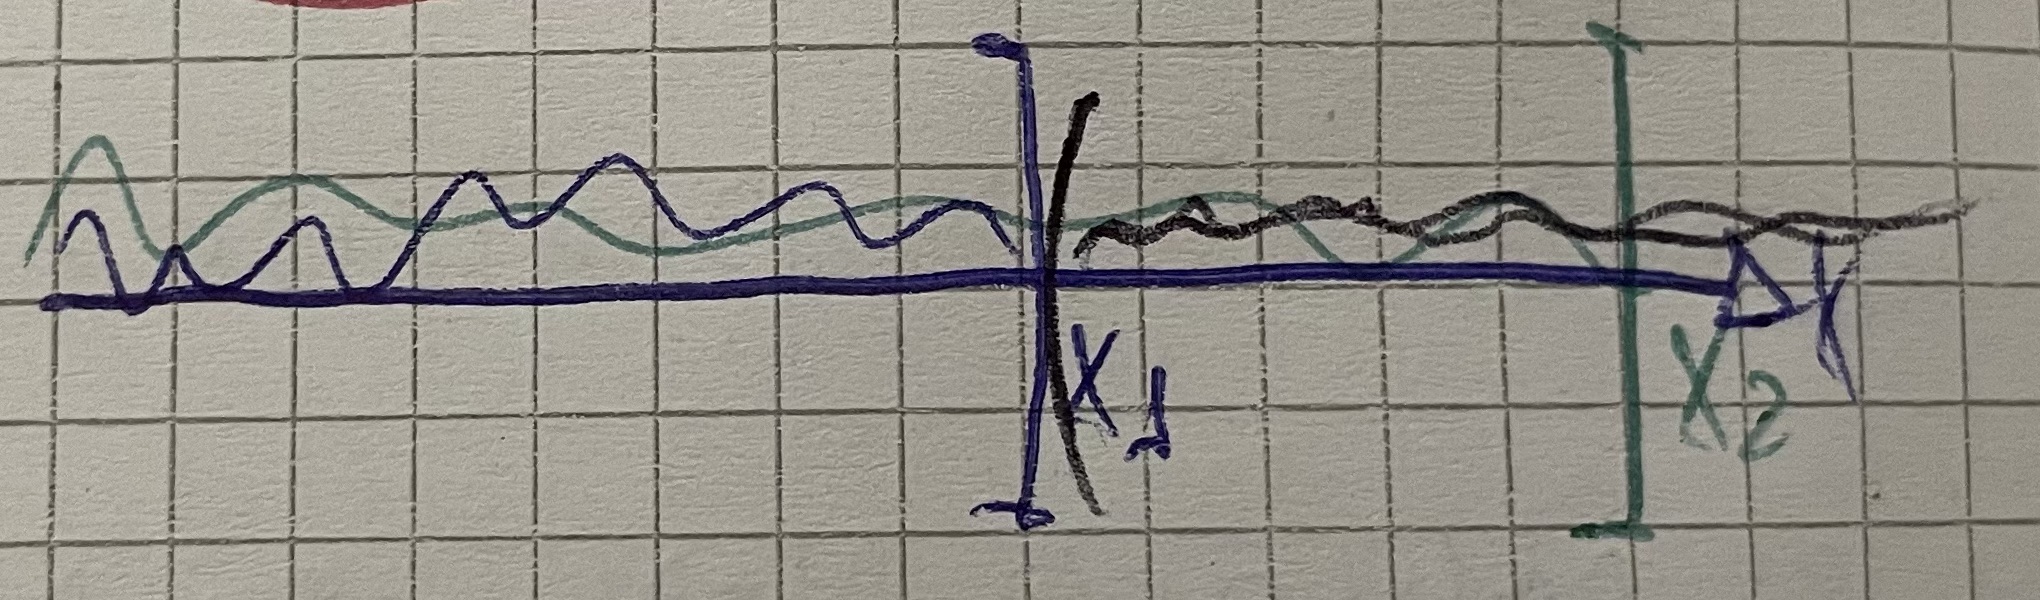 X1
X2